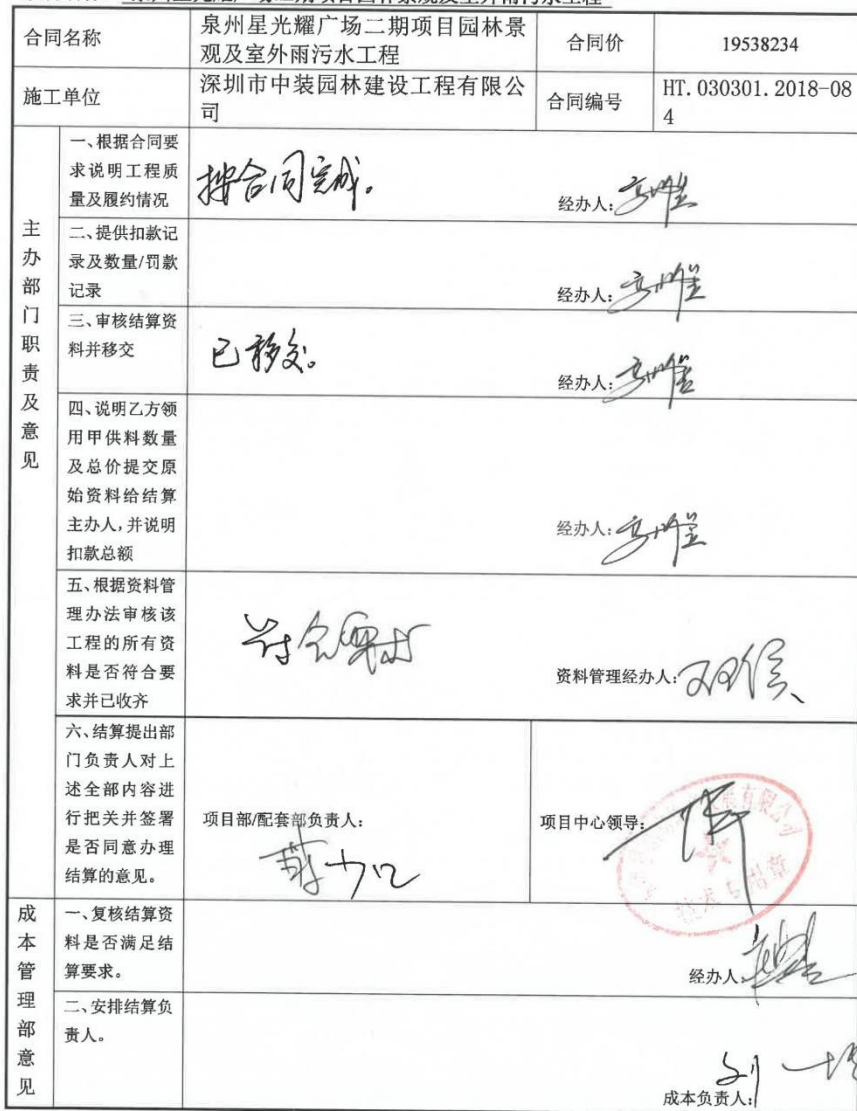 泉州星光耀广场二期项目园林景观及室外雨污水工程
合同名称
泉州星光耀广场二期项目园林景
观及室外雨污水工程
合同价
19538234
施工单位
深圳市中装园林建设工程有限公
司
合同编号
HT.030301.2018-08
4
主办部门职责及意见
一、根据合同要
求说明工程质
量及履约情况
按合同完成。
经办人:
二、提供扣款记
录及数量/罚款
记录
经办人:
三、审核结算资
料并移交
已移交。
经办人:
四、说明乙方领
用甲供料数量
及总价提交原
始资料给结算
主办人,并说明
扣款总额
经办人:
五、根据资料管
理办法审核该
工程的所有资
料是否符合要
求并已收齐
符合要求
资料管理经办人:
六、结算提出部
门负责人对上
述全部内容进
行把关并签署
是否同意办理
结算的意见。
项目部/配套部负责人:
项目中心领导:
成本管理部意见
一、复核结算资
料是否满足结
算要求。
经办人:
二、安排结算负
责人。
成本负责人: